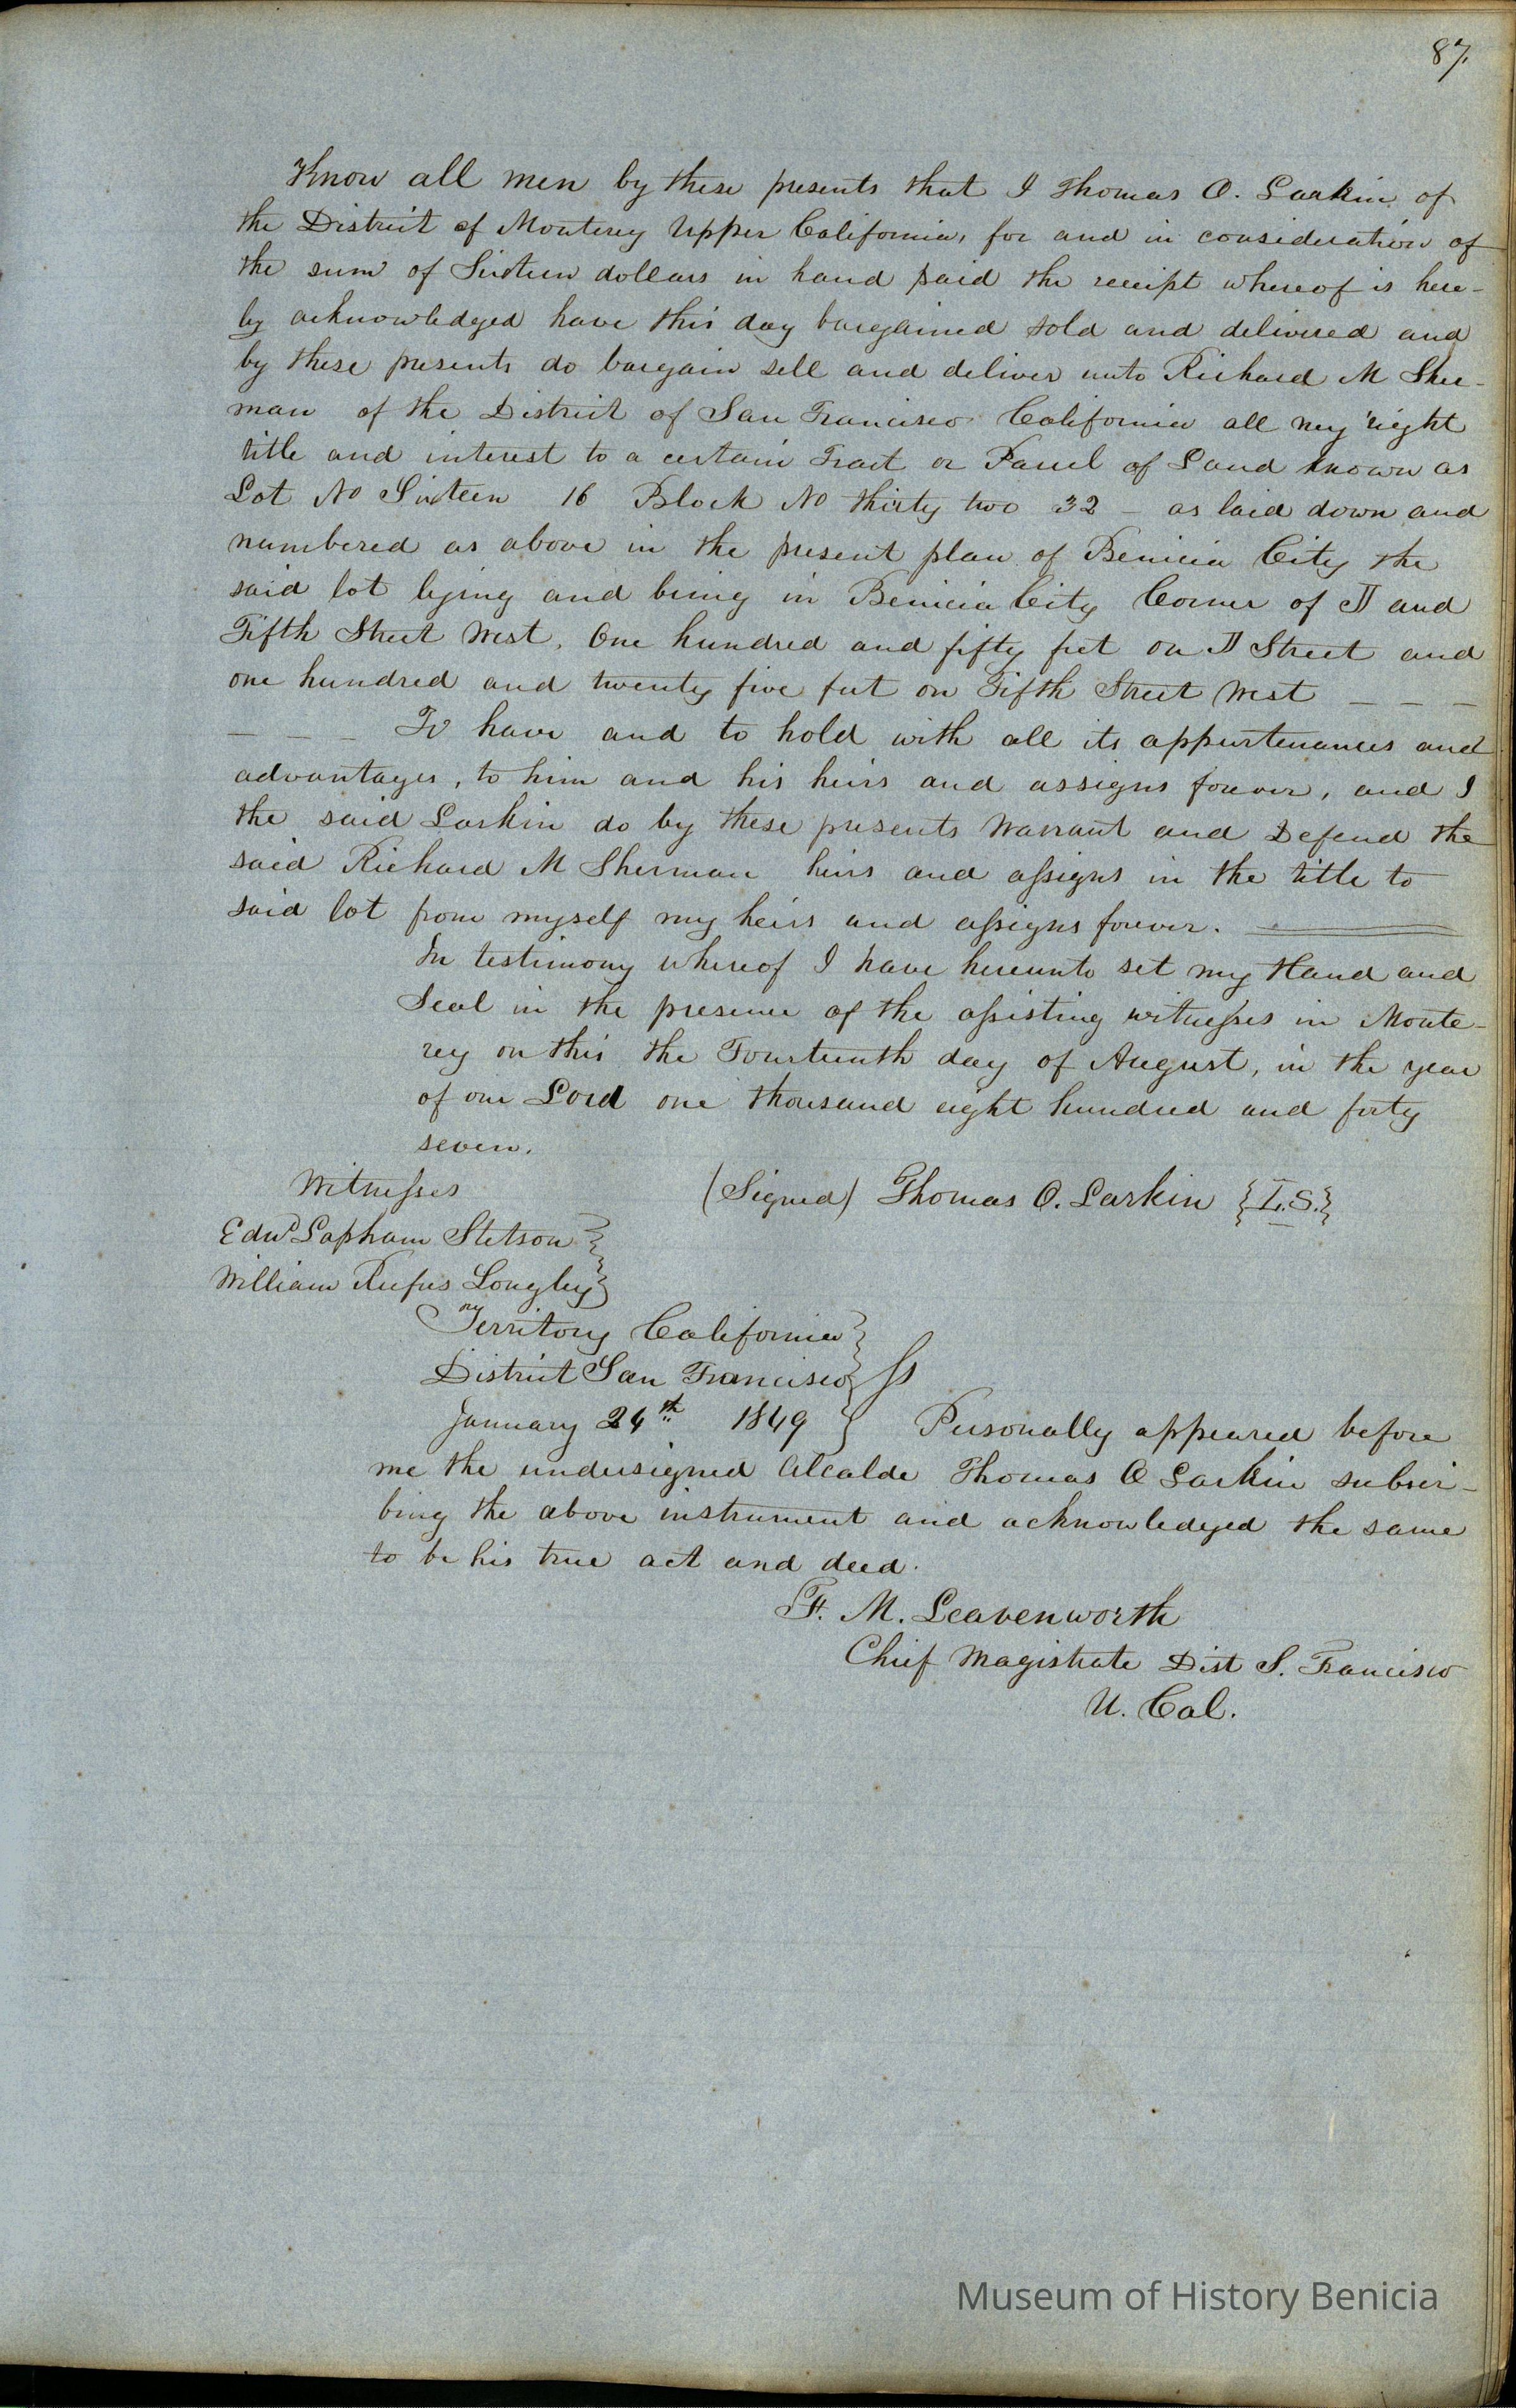 87.
Know all men by these presents that I Thomas O. Larkin of
the District of Monterey Upper California, for and in consideration of
the sum of Sixteen dollars in hand paid the receipt whereof is here-
by acknowledged have this day bargained sold and delivered and
by these presents do bargain sell and deliver unto Richard M Sher-
man of the District of San Francisco California all my right
title and interest to a certain Tract or Parcel of Land known as
Lot No Sixteen 16 Block No thirty two 32 – as laid down and
numbered as above in the present plan of Benicia City the
said lot lying and being in Benicia City Corner of and
Fifth Street West. One hundred and fifty feet on Street and
one hundred and twenty five feet on Fifth Street West – – –
– – – To have and to hold with all its appurtenances and
advantages, to him and his heirs and assigns forever, and I
the said Larkin do by these presents Warrant and Defend the
said Richard M Sherman heirs and assigns in the title to
said lot from myself my heirs and assigns forever.
In testimony whereof I have hereunto set my Hand and
Seal in the presence of the assisting witnesses in Monte-
rey on this the Fourteenth day of August, in the year
of our Lord one thousand eight hundred and forty
seven.
Witnesses (Signed) Thomas O. Larkin {L.S.}
Edwd Lapham Stetson }
William Rufus Longley }
Territory California }
District San Francisco } ss
January 24th 1849 } Personally appeared before
me the undersigned Alcalde Thomas O Larkin subscri-
bing the above instrument and acknowledged the same
to be his true act and deed.
T. M. Leavenworth
Chief Magistrate Dist S. Francisco
U. Cal.
Museum of History Benicia